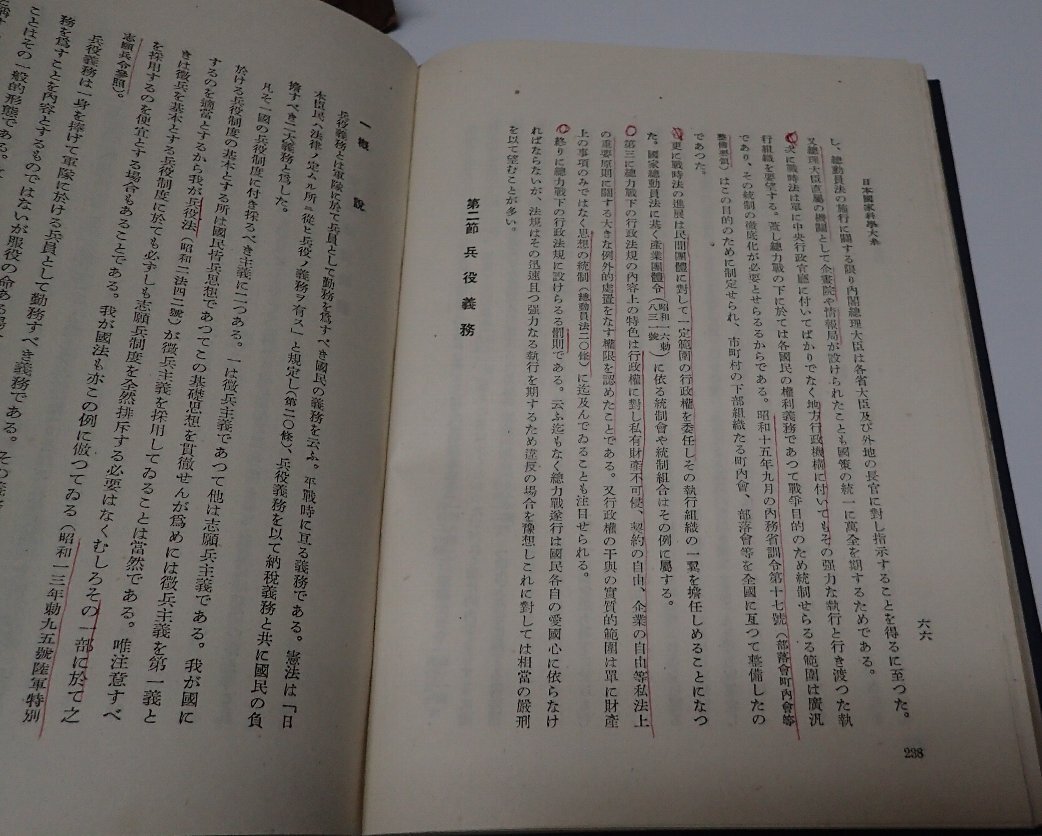 日本國家科學大系
六六
し、總動員法の施行に關する限り內閣總理大臣は各省大臣及び外地の長官に對し指示することを得るに至つた。
又總理大臣直屬の機關として企畫院や情報局が設けられたことも國策の統一に萬全を期するためである。
次に戰時法は單に中央行政官廳に付いてばかりでなく地方行政機構に付いてもその强力な執行と行き渡つた執
行組織を要望する。蓋し總力戰の下に於ては各國民の權利義務であつて戰爭目的のため統制せらるる範圍は廣汎
であり、その統制の徹底化が必要とせらるるからである。昭和十五年九月の內務省訓令第十七號(部落會町內會等
整備要領)はこの目的のために制定せられ、市町村の下部組織たる町內會、部落會等を全國に亙つて整備したの
であつた。
更に戰時法の進展は民間團體に對して一定範圍の行政權を委任しその執行組織の一翼を擔任しめることになつ
た。國家總動員法に基く產業團體令(昭和一六勅八三一號)に依る統制會や統制組合はその例に屬する。
第三に總力戰下の行政法規の內容上の特色は行政權に對し私有財產不可侵、契約の自由、企業の自由等私法上
の重要原則に關する大きな例外的處置をなす權限を認めたことである。又行政權の干與の實質的範圍は單に財產
上の事項のみではなく思想の統制(總動員法二〇條)に迄及んでゐることも注目せられる。
終りに總力戰下の行政法規に設けらるる罰則である。云ふ迄もなく總力戰遂行は國民各自の愛國心に依らなけ
ればならないが、法規はその迅速且つ强力なる執行を期するため違反の場合を豫想しこれに對しては相當の嚴刑
を以て望むことが多い。
第二節 兵役義務
238
一 槪 說
兵役義務とは軍隊に於て兵員として勤務を爲すべき國民の義務を云ふ。平戰時に亙る義務である。憲法は「日
本臣民ハ法律ノ定ムル所ニ從ヒ兵役ノ義務ヲ有ス」と規定し(第二〇條)、兵役義務を以て納稅義務と共に國民の負
擔すべき二大義務と爲した。
凡そ一國の兵役制度に付き採るべき主義に二つある。一は徵兵主義であつて他は志願兵主義である。我が國に
於ける兵役制度の基本とする所は國民皆兵思想であつてこの基礎思想を貫徹せんが爲めには徵兵主義を第一義と
するのを適當とするから我が兵役法(昭和二法四七號)が徵兵主義を採用してゐることは當然である。唯注意すべ
きは徵兵を基本とする兵役制度に於ても必ずしも志願兵制度を全然排斥する必要はなくむしろその一部に於て之
を採用するのを便宜とする場合もあることである。我が國法も亦この例に倣つてゐる(昭和一三年勅九五號陸軍特別
志願兵令參照)。
兵役義務は一身を捧げて軍隊に於ける兵員として勤務すべき義務である。
務を爲すことを內容とするものではないが服役の命ある
ことはその一般的形態である。